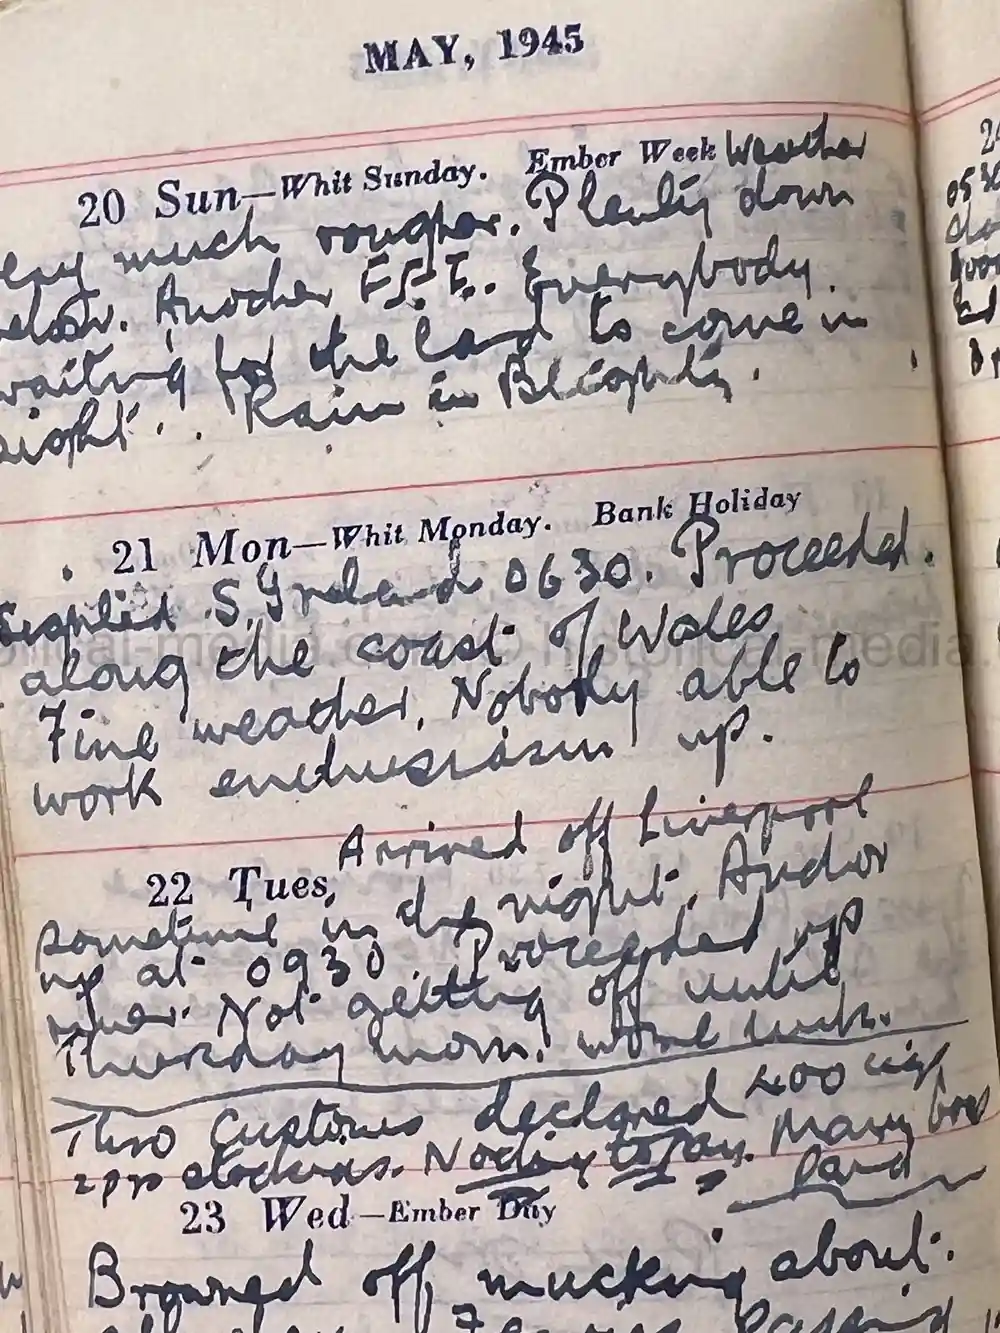 MAY, 1945
20 Sun—Whit Sunday. Ember Week Weather
very much rougher. Plenty down
below. Another F.F.I. Everybody
waiting for the land to come in
sight. Rain in Blighty.
21 Mon—Whit Monday. Bank Holiday
Sighted S. Ireland 0630. Proceeded
along the coast of Wales
Fine weather. Nobody able to
work enthusiasm up.
22 Tues, Arrived off Liverpool
sometime in the night. Anchor
up at 0930. Proceeded up
river. Not getting off until
Thursday morn. worse luck.
Thro Customs declared 400 cigs
2 prs stockings. Nothing to pay. Many boys
paid
23 Wed—Ember Day
Browned off mucking about.